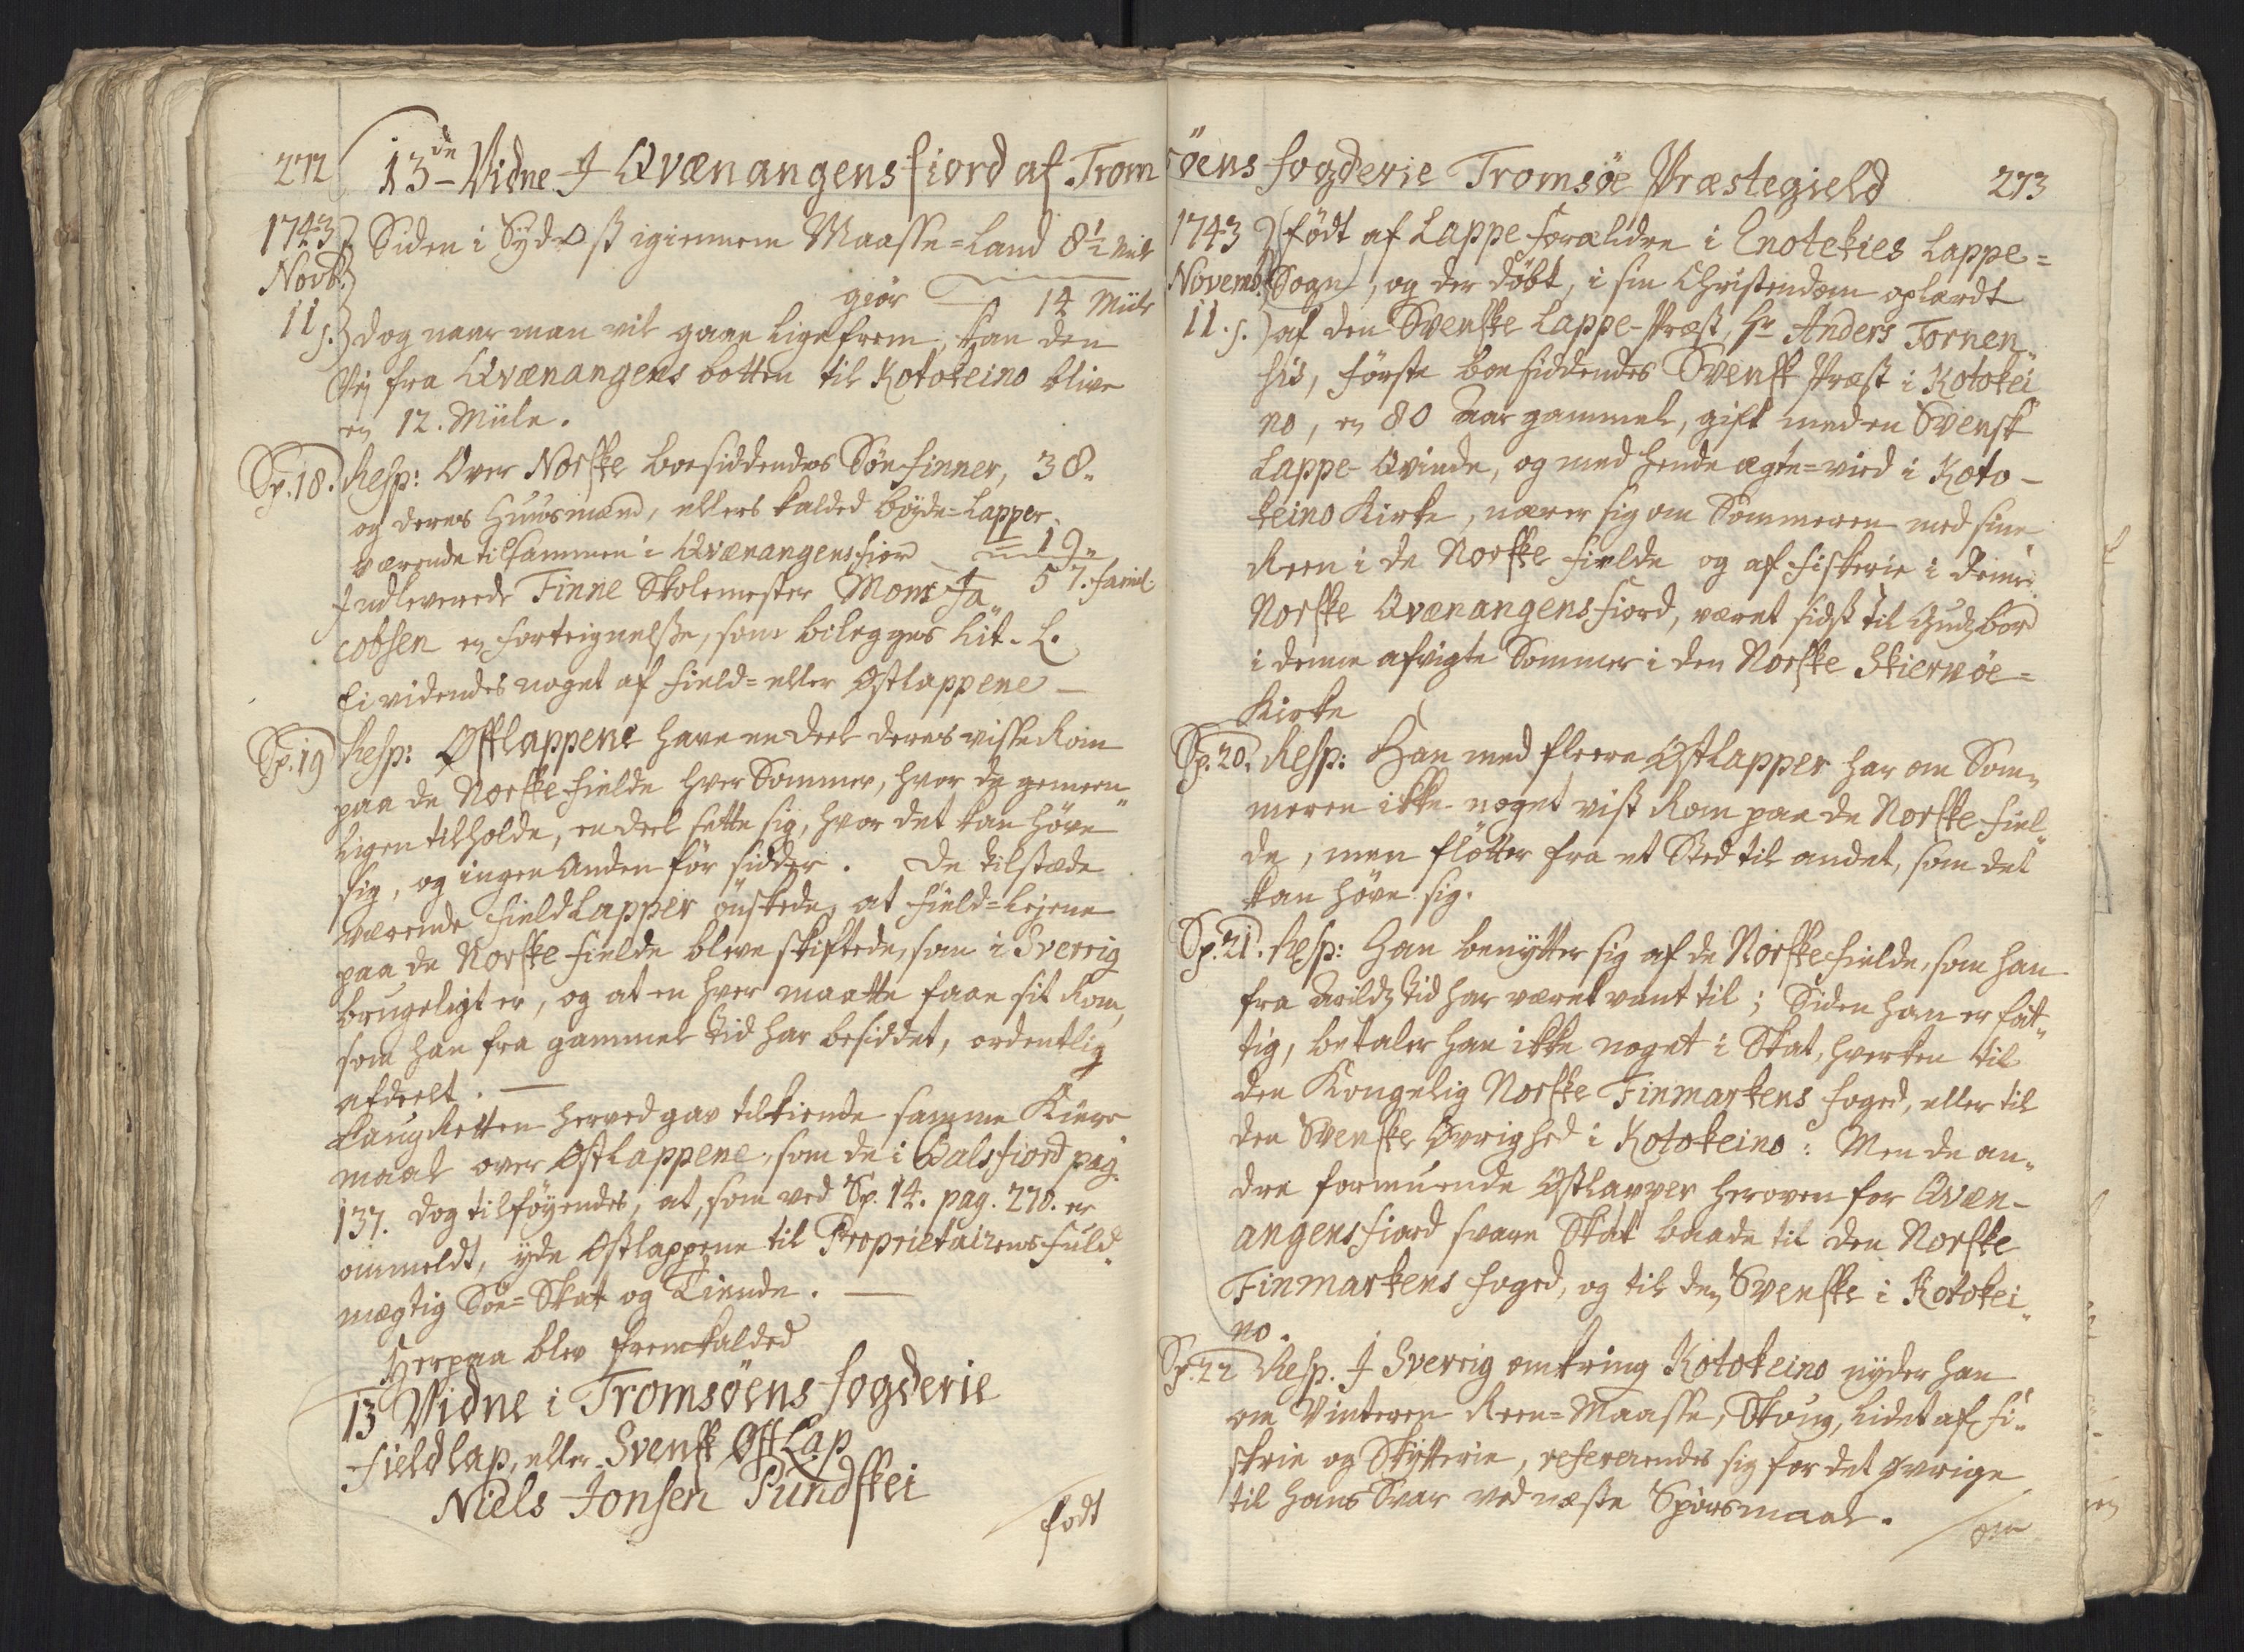 272
13de Vidne I Qvænangens fiord af Trom
1743
Novb.
11 s.
Siden i Syd-Ost igiennem Maasse=Land 8½ Mile
giør 14 Miile
dog naar man vil gaae ligefrem, kan den
Vej fra Qvænangens botten til Kotokeino blive
en 12. Miile.
Sp. 18. Resp: Over Norske boesiddendes Søe finner, 38.
og deres Huusmænd, ellers kalded bøyde=Lapper,
værende tilsammen i Qvænangensfior 19
57. famil.
Indleverede Finne Skolemester Mons Ja„
cobsen en forteignelsse, som bilegges Lit. L.
Ei videndes noget af field= eller Østlappene –
Sp. 19 Resp: Østlappene have en deel deres visse Rom
paa de Norske fielde hver Sommer, hvor de gemeen„
ligen tilholde, en deel sette sig, hvor det kan høve
sig, og ingen Anden før sidder. De tilstæde
værende fieldLapper ønskede, at field=Lejene
paa de Norske fielde bleve skiftede, som i Sverrig
brugeligt er, og at en hver maatte faae sit Rom,
som han fra gammel tid har besiddet, ordentlig
afdeelt. –
LaugRetten herved gav tilkiende samme Kiere
maal over Østlappene, som de i Balsfiord pag.
137. dog tilføyendes, at, som ved Sp. 14. pag. 270. er
ommeldt, yde Østlappene til Proprietairens fuld„
mægtig Søe=Skat og Tiende. –
Herpaa blev fremkalded
13 Vidne i Tromsøens fogderie
Fieldlap, eller Svensk ØstLap
Niels Jonsen Pundskei
født
søens fogderie Tromsøe Præstegield
273
1743
Novemb.
11. s.
født af Lappe forældre i Enotekies Lappe=
Sogn, og der døbt, i sin Christendom oplærdt
af den Svenske Lappe-Præst, Hr Anders Tornen„
sis, første boesiddendes Svensk Præst i Kotokei„
no, en 80 Aar gammel, gift med en Svensk
Lappe-Qvinde, og med hende ægte=vied i Koto–
keino Kirke, nærer sig om Sommeren med sine
Reen i de Norske fielde og af fiskerie i denne
Norske Qvænangensfiord, været sidst til Gudz bord
i denne afvigte Sommer i den Norske Skiervøe=
Kirke
Sp. 20. Resp: Han med fleere Østlapper har om Som„
meren ikke noget vist Rom paa de Norske fiel„
de, men fløtter fra et Sted til andet, som det
kan høve sig.
Sp. 21. Resp: Han benytter sig af de Norske fielde, som han
fra Arildz tid har været vant til; Siden han er fat„
tig, betaler han ikke noget i Skat, hverken til
den Kongelig Norske Finmarkens foged, eller til
den Svenske Øvrighed i Kotokeino: Men de an„
dre formuende Østlapper heroven for Qvæn–
angensfiord svare Skat baade til den Norske
Finmarkens foged, og til den Svenske i Kotokei„
no.
Sp. 22 Resp. I Sverrig omkring Kotokeino nyder han
om Vinteren Reen=Maasse, Skoug, lidet af fi„
skrie og Skytterie, refererendes sig for det øvrige
til hans Svar ved næste Spørsmaal.
om